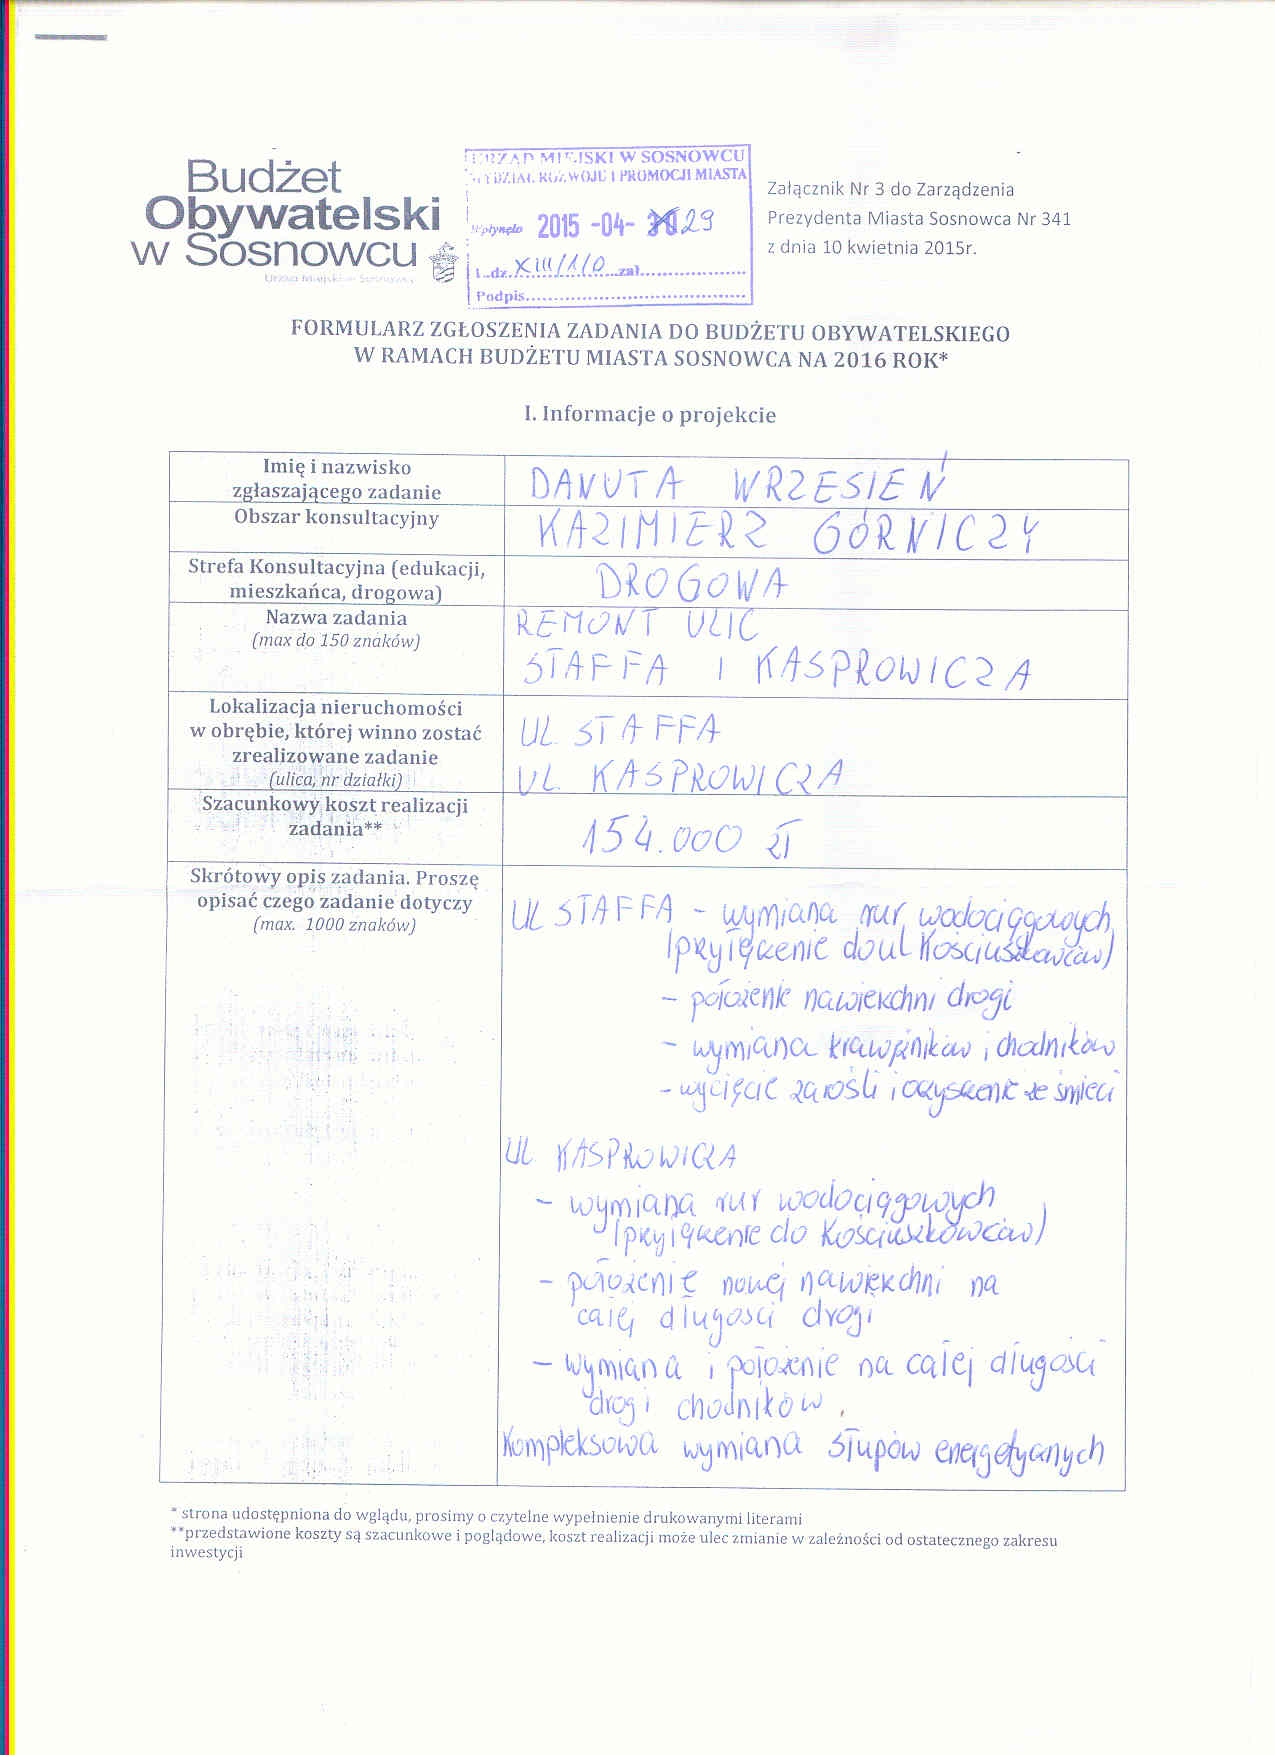 Budżet
Obywatelski
w Sosnowcu
URZĄD MIEJSKI W SOSNOWCU
WYDZIAŁ ROZWOJU I PROMOCJI MIASTA
Wpłynęło 2015 -04- 29
L.dz. XIII/1/0 zał.
Podpis
Załącznik Nr 3 do Zarządzenia
Prezydenta Miasta Sosnowca Nr 341
z dnia 10 kwietnia 2015r.
FORMULARZ ZGŁOSZENIA ZADANIA DO BUDŻETU OBYWATELSKIEGO
W RAMACH BUDŻETU MIASTA SOSNOWCA NA 2016 ROK*
I. Informacje o projekcie
Imię i nazwisko
zgłaszającego zadanie
DANUTA WRZESIEŃ
Obszar konsultacyjny
KAZIMIERZ GÓRNICZY
Strefa Konsultacyjna (edukacji,
mieszkańca, drogowa)
DROGOWA
Nazwa zadania
(max do 150 znaków)
REMONT ULIC
STAFFA I KASPROWICZA
Lokalizacja nieruchomości
w obrębie, której winno zostać
zrealizowane zadanie
(ulica, nr działki)
UL. STAFFA
UL. KASPROWICZA
Szacunkowy koszt realizacji
zadania**
154.000 zł
Skrótowy opis zadania. Proszę
opisać czego zadanie dotyczy
(max. 1000 znaków)
UL STAFFA - wymiana rur wodociągowych
(przyłączenie do ul Kościuszkowców)
- położenie nawierzchni drogi
- wymiana krawężników i chodników
- wycięcie zarośli i oczyszczenie ze śmieci
UL KASPROWICZA
- wymiana rur wodociągowych
(przyłączenie do Kościuszkowców)
- położenie nowej nawierzchni na
całej długości drogi
- wymiana i położenie na całej długości
drogi chodników.
Kompleksowa wymiana słupów energetycznych
* strona udostępniona do wglądu, prosimy o czytelne wypełnienie drukowanymi literami
**przedstawione koszty są szacunkowe i poglądowe, koszt realizacji może ulec zmianie w zależności od ostatecznego zakresu
inwestycji